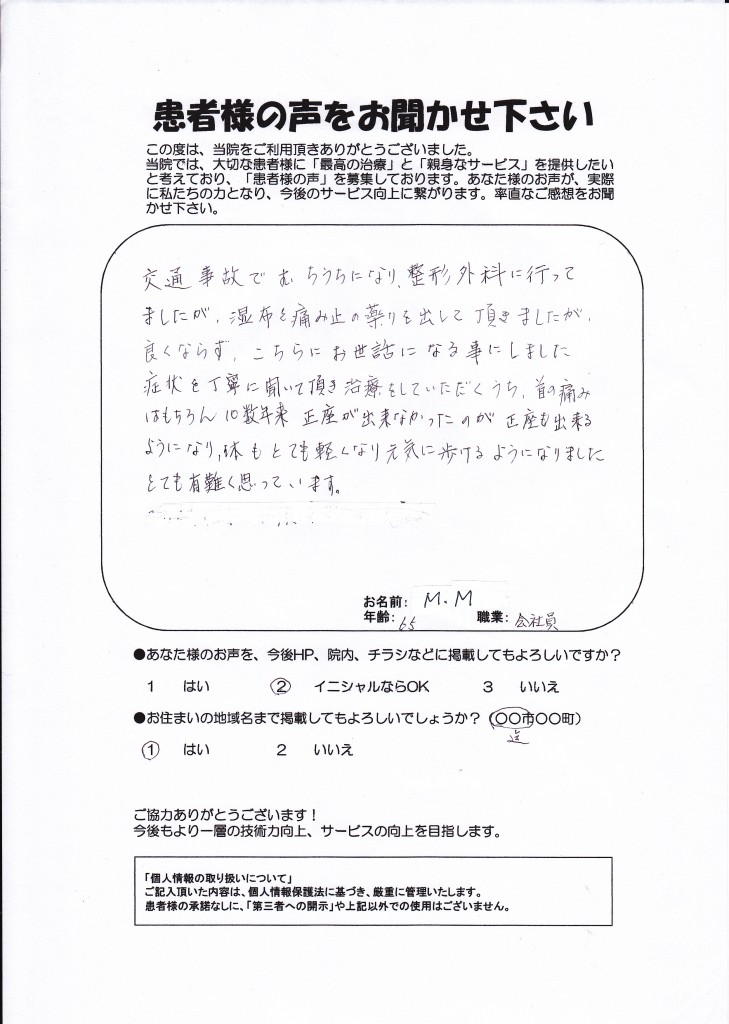 患者様の声をお聞かせ下さい
この度は、当院をご利用頂きありがとうございました。
当院では、大切な患者様に「最高の治療」と「親身なサービス」を提供したい
と考えており、「患者様の声」を募集しております。あなた様のお声が、実際
に私たちの力となり、今後のサービス向上に繋がります。率直なご感想をお聞
かせ下さい。
交通事故でむちうちになり、整形外科に行って
ましたが、湿布と痛み止の薬りを出して頂きましたが、
良くならず、こちらにお世話になる事にしました
症状を丁寧に聞いて頂き治療をしていただくうち、首の痛み
はもちろん10数年来 正座が出来なかったのが 正座も出来る
ようになり、体もとても軽くなり元気に歩けるようになりました
とても有難く思っています。
お名前: M.M
年齢: 65 職業: 会社員
●あなた様のお声を、今後HP、院内、チラシなどに掲載してもよろしいですか?
1 はい ② イニシャルならOK 3 いいえ
●お住まいの地域名まで掲載してもよろしいでしょうか?(〇〇市〇〇町)
迄
① はい 2 いいえ
ご協力ありがとうございます!
今後もより一層の技術力向上、サービスの向上を目指します。
「個人情報の取り扱いについて」
ご記入頂いた内容は、個人情報保護法に基づき、厳重に管理いたします。
患者様の承諾なしに、「第三者への開示」や上記以外での使用はございません。